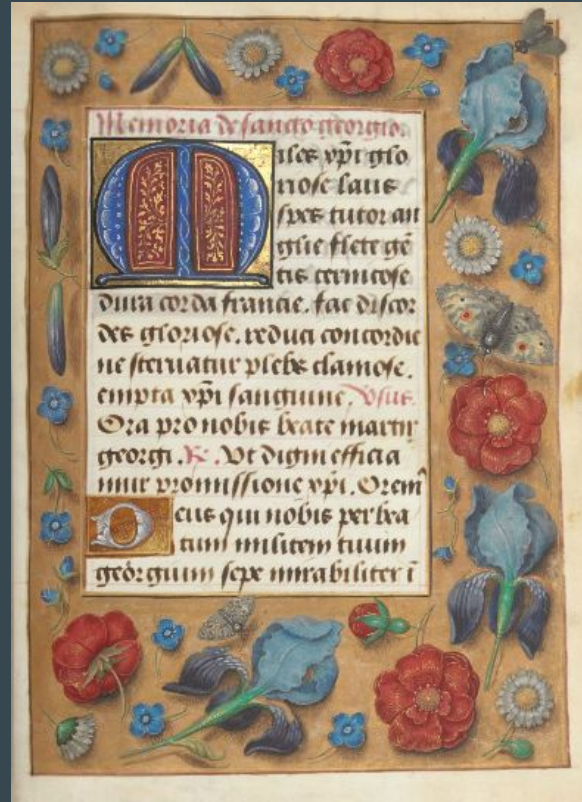 Memoria de sancto georgio.
Miles xpi glo
riose laus
spes tutor an
glie flete gē
tis ceruicose
dura corda francie. fac discor
des gloriose. reduci concordie
ne sternatur plebs clamose.
empta xpi sanguine. Vsus.
Ora pro nobis beate martir
georgi. R. Vt digni efficia
mur promissione xpi. Orem̄
Deus qui nobis per bea
tum militem tuum
georgium sepe mirabiliter ī